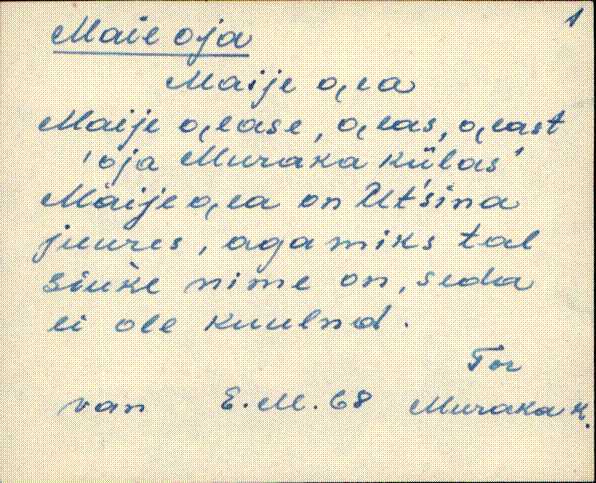 1
Maie oja
Maije o̯ja
Maije o̯jase, o̯jas, o̯jast
'oja Muraka külas'
Maije o̯ja on Utśina
juures, aga miks tal
siuke nime on, seda
ei ole kuulnd.
Tor
van E.M. 68 Muraka k.